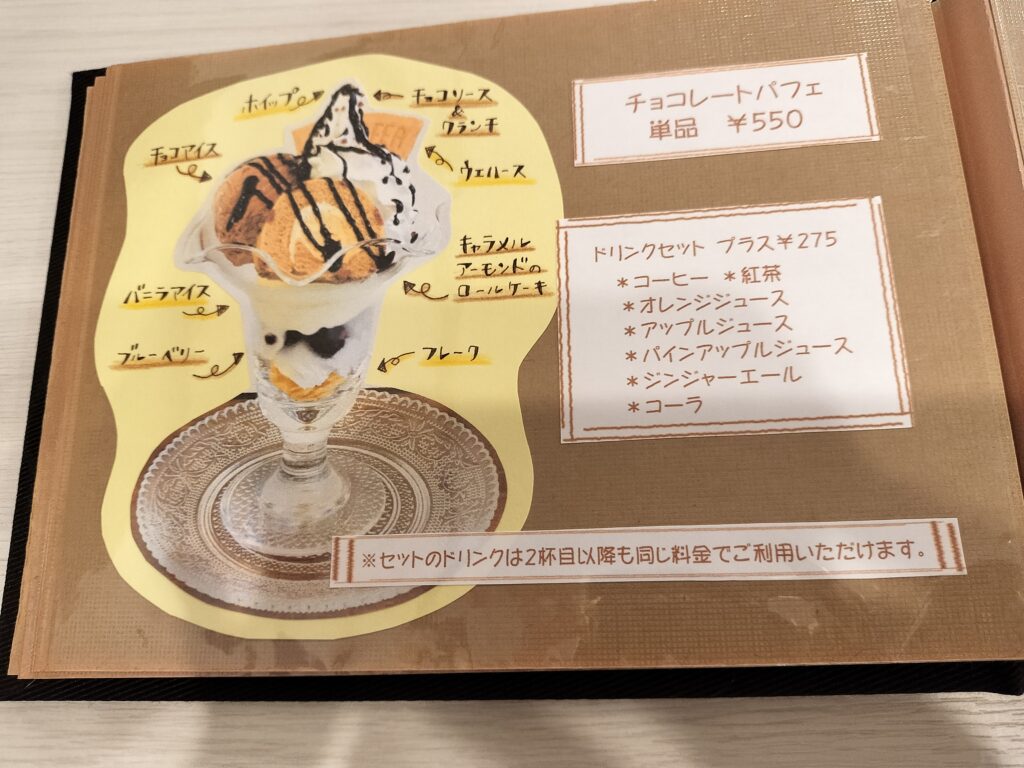 ホイップ
チョコソース
&
クランチ
チョコアイス
ウエハース
キャラメル
アーモンドの
ロールケーキ
バニラアイス
ブルーベリー
フレーク
チョコレートパフェ
単品 ￥550
ドリンクセット プラス￥275
＊コーヒー ＊紅茶
＊オレンジジュース
＊アップルジュース
＊パインアップルジュース
＊ジンジャーエール
＊コーラ
※セットのドリンクは2杯目以降も同じ料金でご利用いただけます。